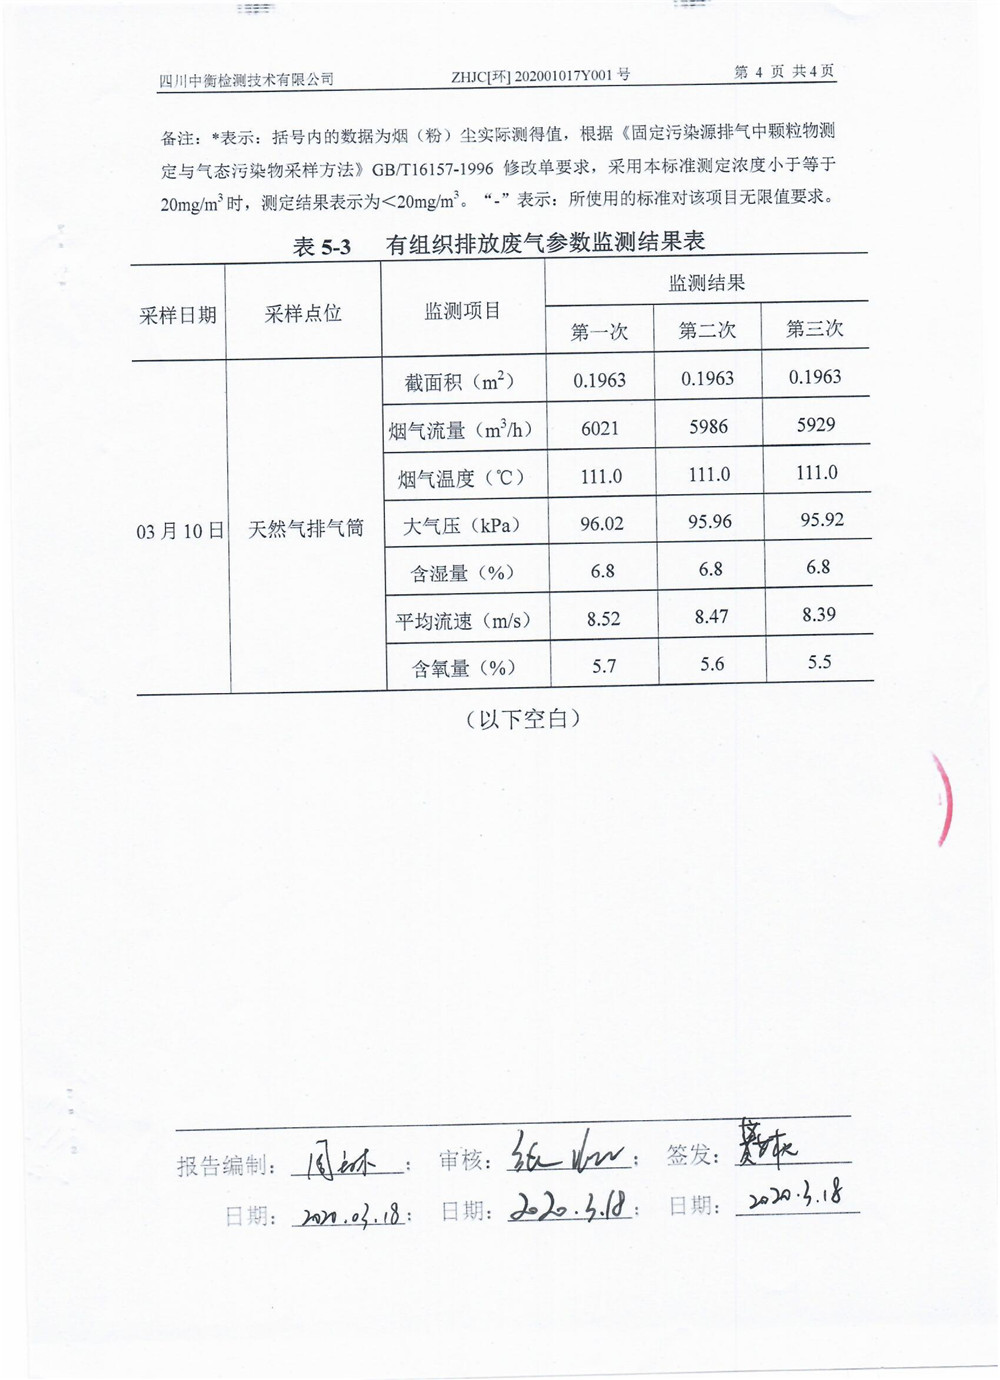 四川中衡检测技术有限公司 ZHJC[环] 202001017Y001 号 第 4 页 共4页
备注：*表示：括号内的数据为烟（粉）尘实际测得值，根据《固定污染源排气中颗粒物测
定与气态污染物采样方法》GB/T16157-1996 修改单要求，采用本标准测定浓度小于等于
20mg/m³时，测定结果表示为＜20mg/m³。“-”表示：所使用的标准对该项目无限值要求。
表 5-3 有组织排放废气参数监测结果表
采样日期 采样点位 监测项目 监测结果
第一次 第二次 第三次
03 月 10 日 天然气排气筒
截面积（m²） 0.1963 0.1963 0.1963
烟气流量（m³/h） 6021 5986 5929
烟气温度（℃） 111.0 111.0 111.0
大气压（kPa） 96.02 95.96 95.92
含湿量（%） 6.8 6.8 6.8
平均流速（m/s） 8.52 8.47 8.39
含氧量（%） 5.7 5.6 5.5
（以下空白）
报告编制： ； 审核： ； 签发：
日期： 2020.03.18； 日期： 2020.3.18； 日期： 2020.3.18